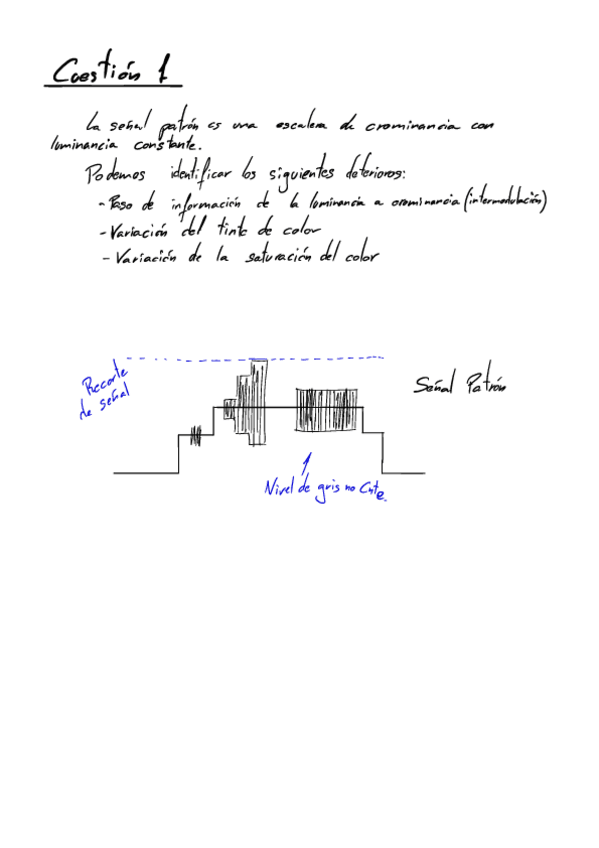 Cuestión 1
La señal patrón es una escalera de crominancia con
luminancia constante.
Podemos identificar los siguientes deterioros:
- Paso de información de la luminancia a crominancia (intermodulación)
- Variación del tinte de color
- Variación de la saturación del color
Recorte
de señal
Señal Patrón
Nivel de gris no Cnte.